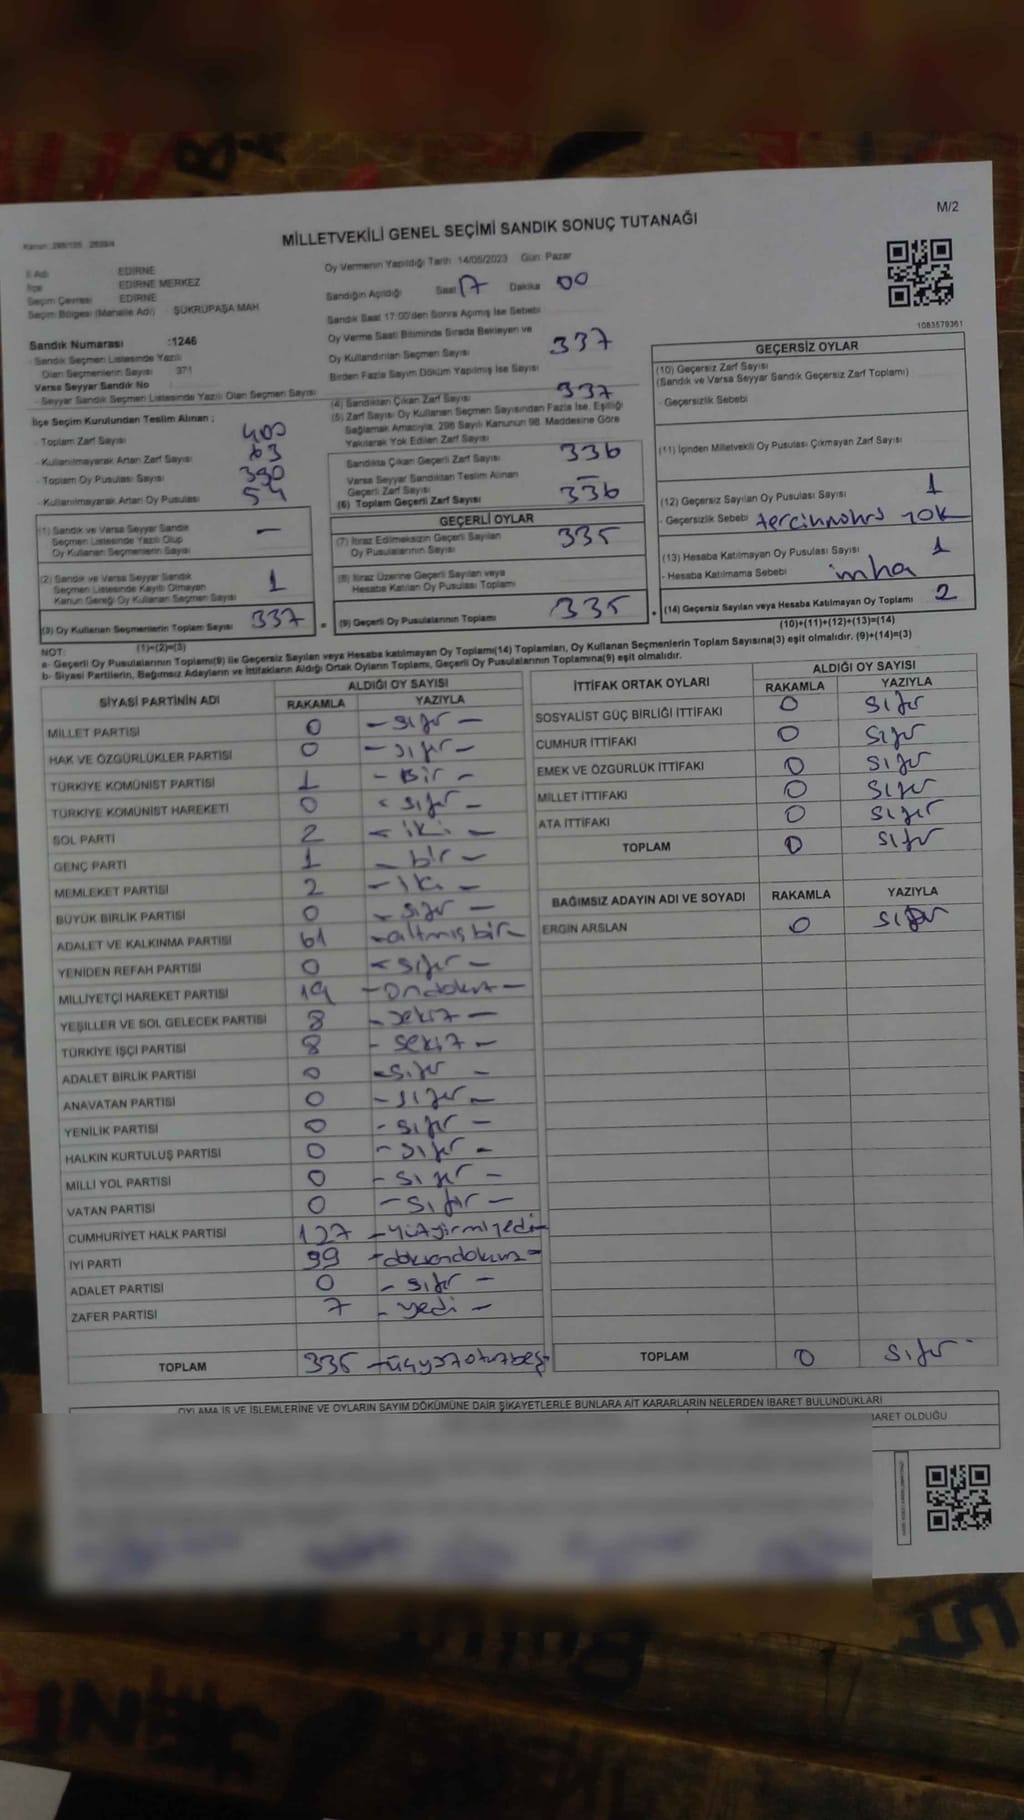 M/2
MİLLETVEKİLİ GENEL SEÇİMİ SANDIK SONUÇ TUTANAĞI
İl Adı EDİRNE
İlçe EDİRNE MERKEZ
Seçim Çevresi EDİRNE
Seçim Bölgesi (Mahalle Adı) ŞÜKRÜPAŞA MAH
Sandık Numarası :1246
- Sandık Seçmen Listesinde Yazılı
Olan Seçmenlerin Sayısı 371
Varsa Seyyar Sandık No
- Seyyar Sandık Seçmen Listesinde Yazılı Olan Seçmen Sayısı
İlçe Seçim Kurulundan Teslim Alınan ;
- Toplam Zarf Sayısı 400
- Kullanılmayarak Artan Zarf Sayısı 63
- Toplam Oy Pusulası Sayısı 390
- Kullanılmayarak Artan Oy Pusulası 54
(1) Sandık ve Varsa Seyyar Sandık
Seçmen Listesinde Yazılı Olup
Oy Kullanan Seçmenlerin Sayısı —
(2) Sandık ve Varsa Seyyar Sandık
Seçmen Listesinde Kayıtlı Olmayan
Kanun Gereği Oy Kullanan Seçmen Sayısı 1
(3) Oy Kullanan Seçmenlerin Toplam Sayısı 337
(1)+(2)=(3)
Oy Vermenin Yapıldığı Tarih :14/05/2023 Gün: Pazar
Sandığın Açıldığı Saat 17 Dakika 00
Sandık Saat 17:00'den Sonra Açılmış İse Sebebi
Oy Verme Saati Bitiminde Sırada Bekleyen ve
Oy Kullandırılan Seçmen Sayısı 337
Birden Fazla Sayım Döküm Yapılmış İse Sayısı
(4) Sandıktan Çıkan Zarf Sayısı 337
(5) Zarf Sayısı Oy Kullanan Seçmen Sayısından Fazla İse, Eşitliği
Sağlamak Amacıyla, 298 Sayılı Kanunun 98. Maddesine Göre
Yakılarak Yok Edilen Zarf Sayısı
Sandıkta Çıkan Geçerli Zarf Sayısı 336
Varsa Seyyar Sandıktan Teslim Alınan
Geçerli Zarf Sayısı —
(6) Toplam Geçerli Zarf Sayısı 336
GEÇERLİ OYLAR
(7) İtiraz Edilmeksizin Geçerli Sayılan
Oy Pusulalarının Sayısı 335
(8) İtiraz Üzerine Geçerli Sayılan veya
Hesaba Katılan Oy Pusulası Toplamı
(9) Geçerli Oy Pusulalarının Toplamı 335
1083579361
GEÇERSİZ OYLAR
(10) Geçersiz Zarf Sayısı
(Sandık ve Varsa Seyyar Sandık Geçersiz Zarf Toplamı)
- Geçersizlik Sebebi
(11) İçinden Milletvekili Oy Pusulası Çıkmayan Zarf Sayısı
(12) Geçersiz Sayılan Oy Pusulası Sayısı 1
- Geçersizlik Sebebi yok
(13) Hesaba Katılmayan Oy Pusulası Sayısı 1
- Hesaba Katılmama Sebebi imha
(14) Geçersiz Sayılan veya Hesaba Katılmayan Oy Toplamı 2
(10)+(11)+(12)+(13)=(14)
NOT:
a- Geçerli Oy Pusulalarının Toplamı(9) ile Geçersiz Sayılan veya Hesaba Katılmayan Oy Toplamı(14) Toplamları, Oy Kullanan Seçmenlerin Toplam Sayısına(3) eşit olmalıdır. (9)+(14)=(3)
b- Siyasi Partilerin, Bağımsız Adayların ve İttifakların Aldığı Ortak Oyların Toplamı, Geçerli Oy Pusulalarının Toplamına(9) eşit olmalıdır.
SİYASİ PARTİNİN ADI ALDIĞI OY SAYISI
RAKAMLA YAZIYLA
MİLLET PARTİSİ 0 - sıfır -
HAK VE ÖZGÜRLÜKLER PARTİSİ 0 - sıfır -
TÜRKİYE KOMÜNİST PARTİSİ 1 - Bir -
TÜRKİYE KOMÜNİST HAREKETİ 0 - sıfır -
SOL PARTİ 2 - iki -
GENÇ PARTİ 1 - bir -
MEMLEKET PARTİSİ 2 - iki -
BÜYÜK BİRLİK PARTİSİ 0 - sıfır -
ADALET VE KALKINMA PARTİSİ 61 - altmış bir -
YENİDEN REFAH PARTİSİ 0 - sıfır -
MİLLİYETÇİ HAREKET PARTİSİ 19 - ondokuz -
YEŞİLLER VE SOL GELECEK PARTİSİ 8 - sekiz -
TÜRKİYE İŞÇİ PARTİSİ 8 - sekiz -
ADALET BİRLİK PARTİSİ 0 - sıfır -
ANAVATAN PARTİSİ 0 - sıfır -
YENİLİK PARTİSİ 0 - sıfır -
HALKIN KURTULUŞ PARTİSİ 0 - sıfır -
MİLLİ YOL PARTİSİ 0 - sıfır -
VATAN PARTİSİ 0 - sıfır -
CUMHURİYET HALK PARTİSİ 127 - yüzyirmiyedi -
İYİ PARTİ 99 - doksandokuz -
ADALET PARTİSİ 0 - sıfır -
ZAFER PARTİSİ 7 - yedi -
TOPLAM 335 - üçyüzotuzbeş -
İTTİFAK ORTAK OYLARI ALDIĞI OY SAYISI
RAKAMLA YAZIYLA
SOSYALİST GÜÇ BİRLİĞİ İTTİFAKI 0 sıfır
CUMHUR İTTİFAKI 0 sıfır
EMEK VE ÖZGÜRLÜK İTTİFAKI 0 sıfır
MİLLET İTTİFAKI 0 sıfır
ATA İTTİFAKI 0 sıfır
TOPLAM 0 sıfır
BAĞIMSIZ ADAYIN ADI VE SOYADI RAKAMLA YAZIYLA
ERGİN ARSLAN 0 sıfır
TOPLAM 0 sıfır
OYLAMA İŞ VE İŞLEMLERİNE VE OYLARIN SAYIM DÖKÜMÜNE DAİR ŞİKAYETLERLE BUNLARA AİT KARARLARIN NELERDEN İBARET BULUNDUKLARI
BARET OLDUĞU